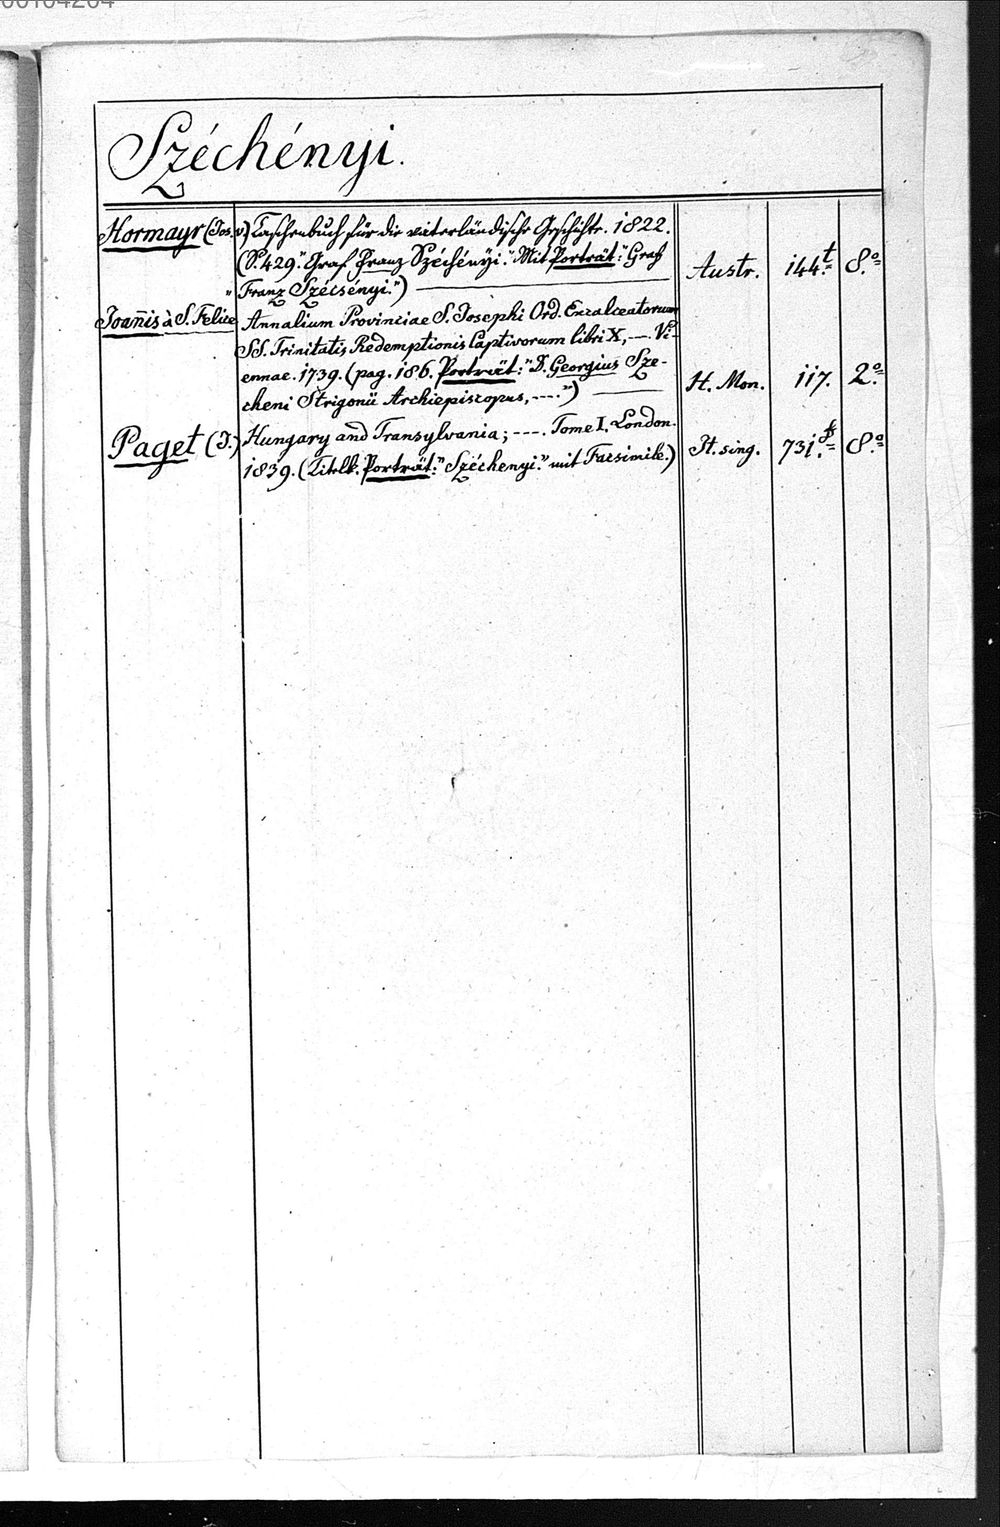 00104204
Széchényi.
Hormayr (Jos. v.) Taschenbuch für die vaterländische Geschichte. 1822.
(S. 429. "Graf Franz Széchényi." Mit Porträt: "Graf
Franz Szécsényi.") Austr. 144.t 8.o
Joannis à S. Felice Annalium Provinciae S. Josephi Ord. Excalceatorum
SS. Trinitatis Redemptionis Captivorum libri X, --- Vi-
ennae. 1739. (pag. 186. Porträt: "D. Georgius Sze-
cheni Strigonii Archiepiscopus, ----.") H. Mon. 117. 2.o
Paget (J.) Hungary and Transylvania; ---. Tome I. London.
1839. (Titelk. Porträt: "Széchenyi." mit Facsimile.) It. sing. 731. 8.o